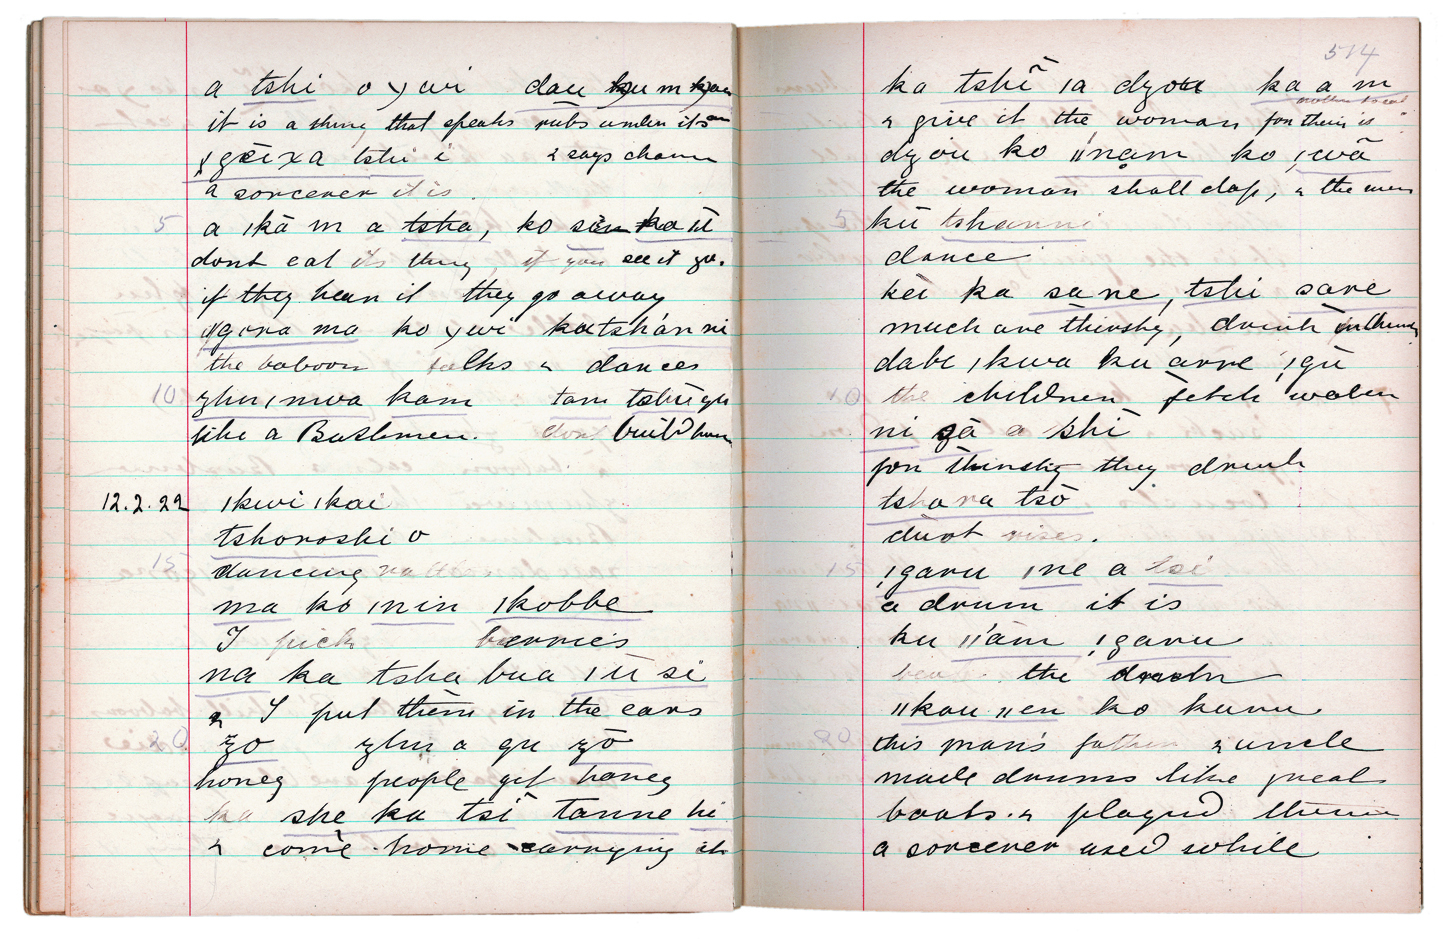 a tshi o ɣwi dau kum
it is a thing that speaks rubs under its arm
ǂgēixa tshi i & says charm
a sorcerer it is
5 a ǀkā m a tsha, ko sin ka ū
dont eat its thing, if you see it go.
if they hear it they go away
ǁgora ma ko ɣwi ka tshánni
the baboon talks & dances
10 zhu ǀnwa kam tam tshū gu
like a Bushmen. dont build
12.2.22 ǀkwi ǀkai
tshoroshi o
15 dancing rattles
ma ko ǀnin ǀkobbe
I pick berries
na ka tsha bua ǀū si
& I put them in the ears
20 zo zhu a gu zō
honey people get honey
ka she ka tsi tanne hi
& come home carrying it
514
ka tshī ǀa dzou ka a m
& give it the woman for their is
dzou ko ǁnam ko ǃwā
the woman shall clap, & the men
5 kū tshanni
dance
kei ka sane, tshi sare
much are thirsty, drink
dabe ǀkwa ku arre ǃgū
10 the children fetch water
ni gā a shi
for thirsty they drink
tshara tsō
dust rises.
15 ǃgaru ǀne a tsi
a drum it is
ku ǁ'am ǃgaru
beat the drum
ǁkau ǁen ko karu
20 this man's father & uncle
made drums like great
boats & played them
a sorcerer used while